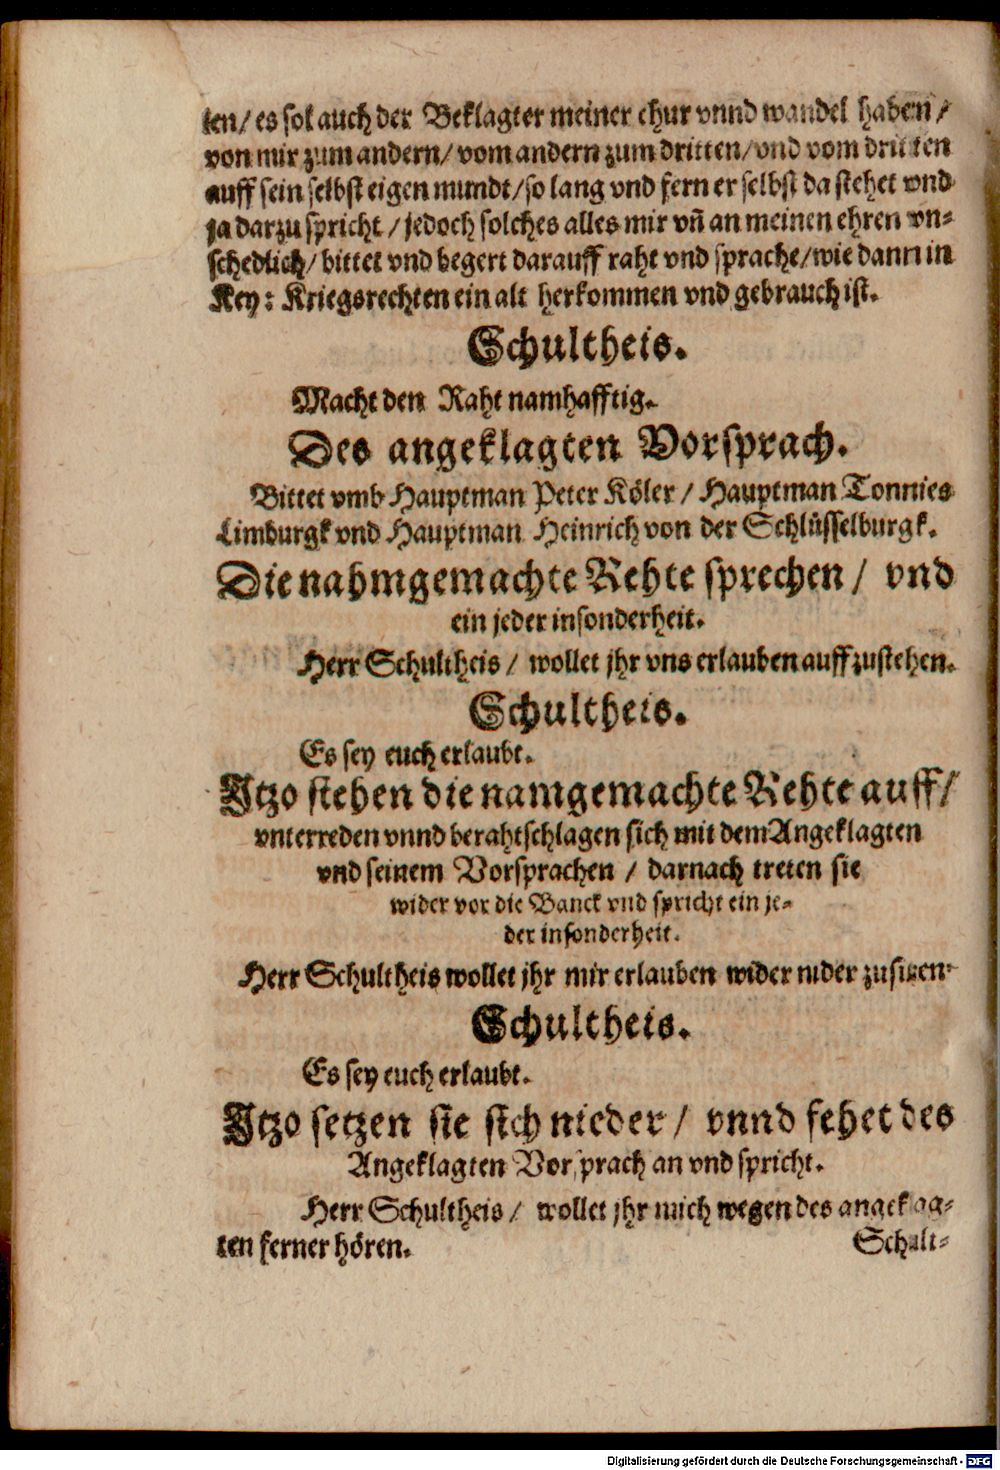 ten/ es sol auch der Beklagter meiner chur vnnd wandel haben/
von mir zum andern/ vom andern zum dritten/ vnd vom dritten
auff sein selbst eigen mundt/ so lang vnd fern er selbst da stehet vnd
ja darzu spricht/ jedoch solches alles mir vñ an meinen ehren vn-
schedlich/ bittet vnd begert darauff raht vnd sprache/ wie dann in
Key: Kriegsrechten ein alt herkommen vnd gebrauch ist.
Schultheis.
Macht den Raht namhafftig.
Des angeklagten Vorsprach.
Bittet vmb Hauptman Peter Köler/ Hauptman Tonnies
Limburgk vnd Hauptman Heinrich von der Schlüsselburgk.
Die nahmgemachte Rehte sprechen/ vnd
ein jeder insonderheit.
Herr Schultheis/ wollet jhr vns erlauben auffzustehen.
Schultheis.
Es sey euch erlaubt.
Itzo stehen die namgemachte Rehte auff/
vnterreden vnnd berahtschlagen sich mit dem Angeklagten
vnd seinem Vorsprachen/ darnach treten sie
wider vor die Banck vnd spricht ein je-
der insonderheit.
Herr Schultheis wollet jhr mir erlauben wider nider zusitzen.
Schultheis.
Es sey euch erlaubt.
Itzo setzen sie sich nieder/ vnnd fehet des
Angeklagten Vorsprach an vnd spricht.
Herr Schultheis/ wollet jhr mich wegen des angeklag-
ten ferner hören.
Schult-
Digitalisierung gefördert durch die Deutsche Forschungsgemeinschaft - DFG